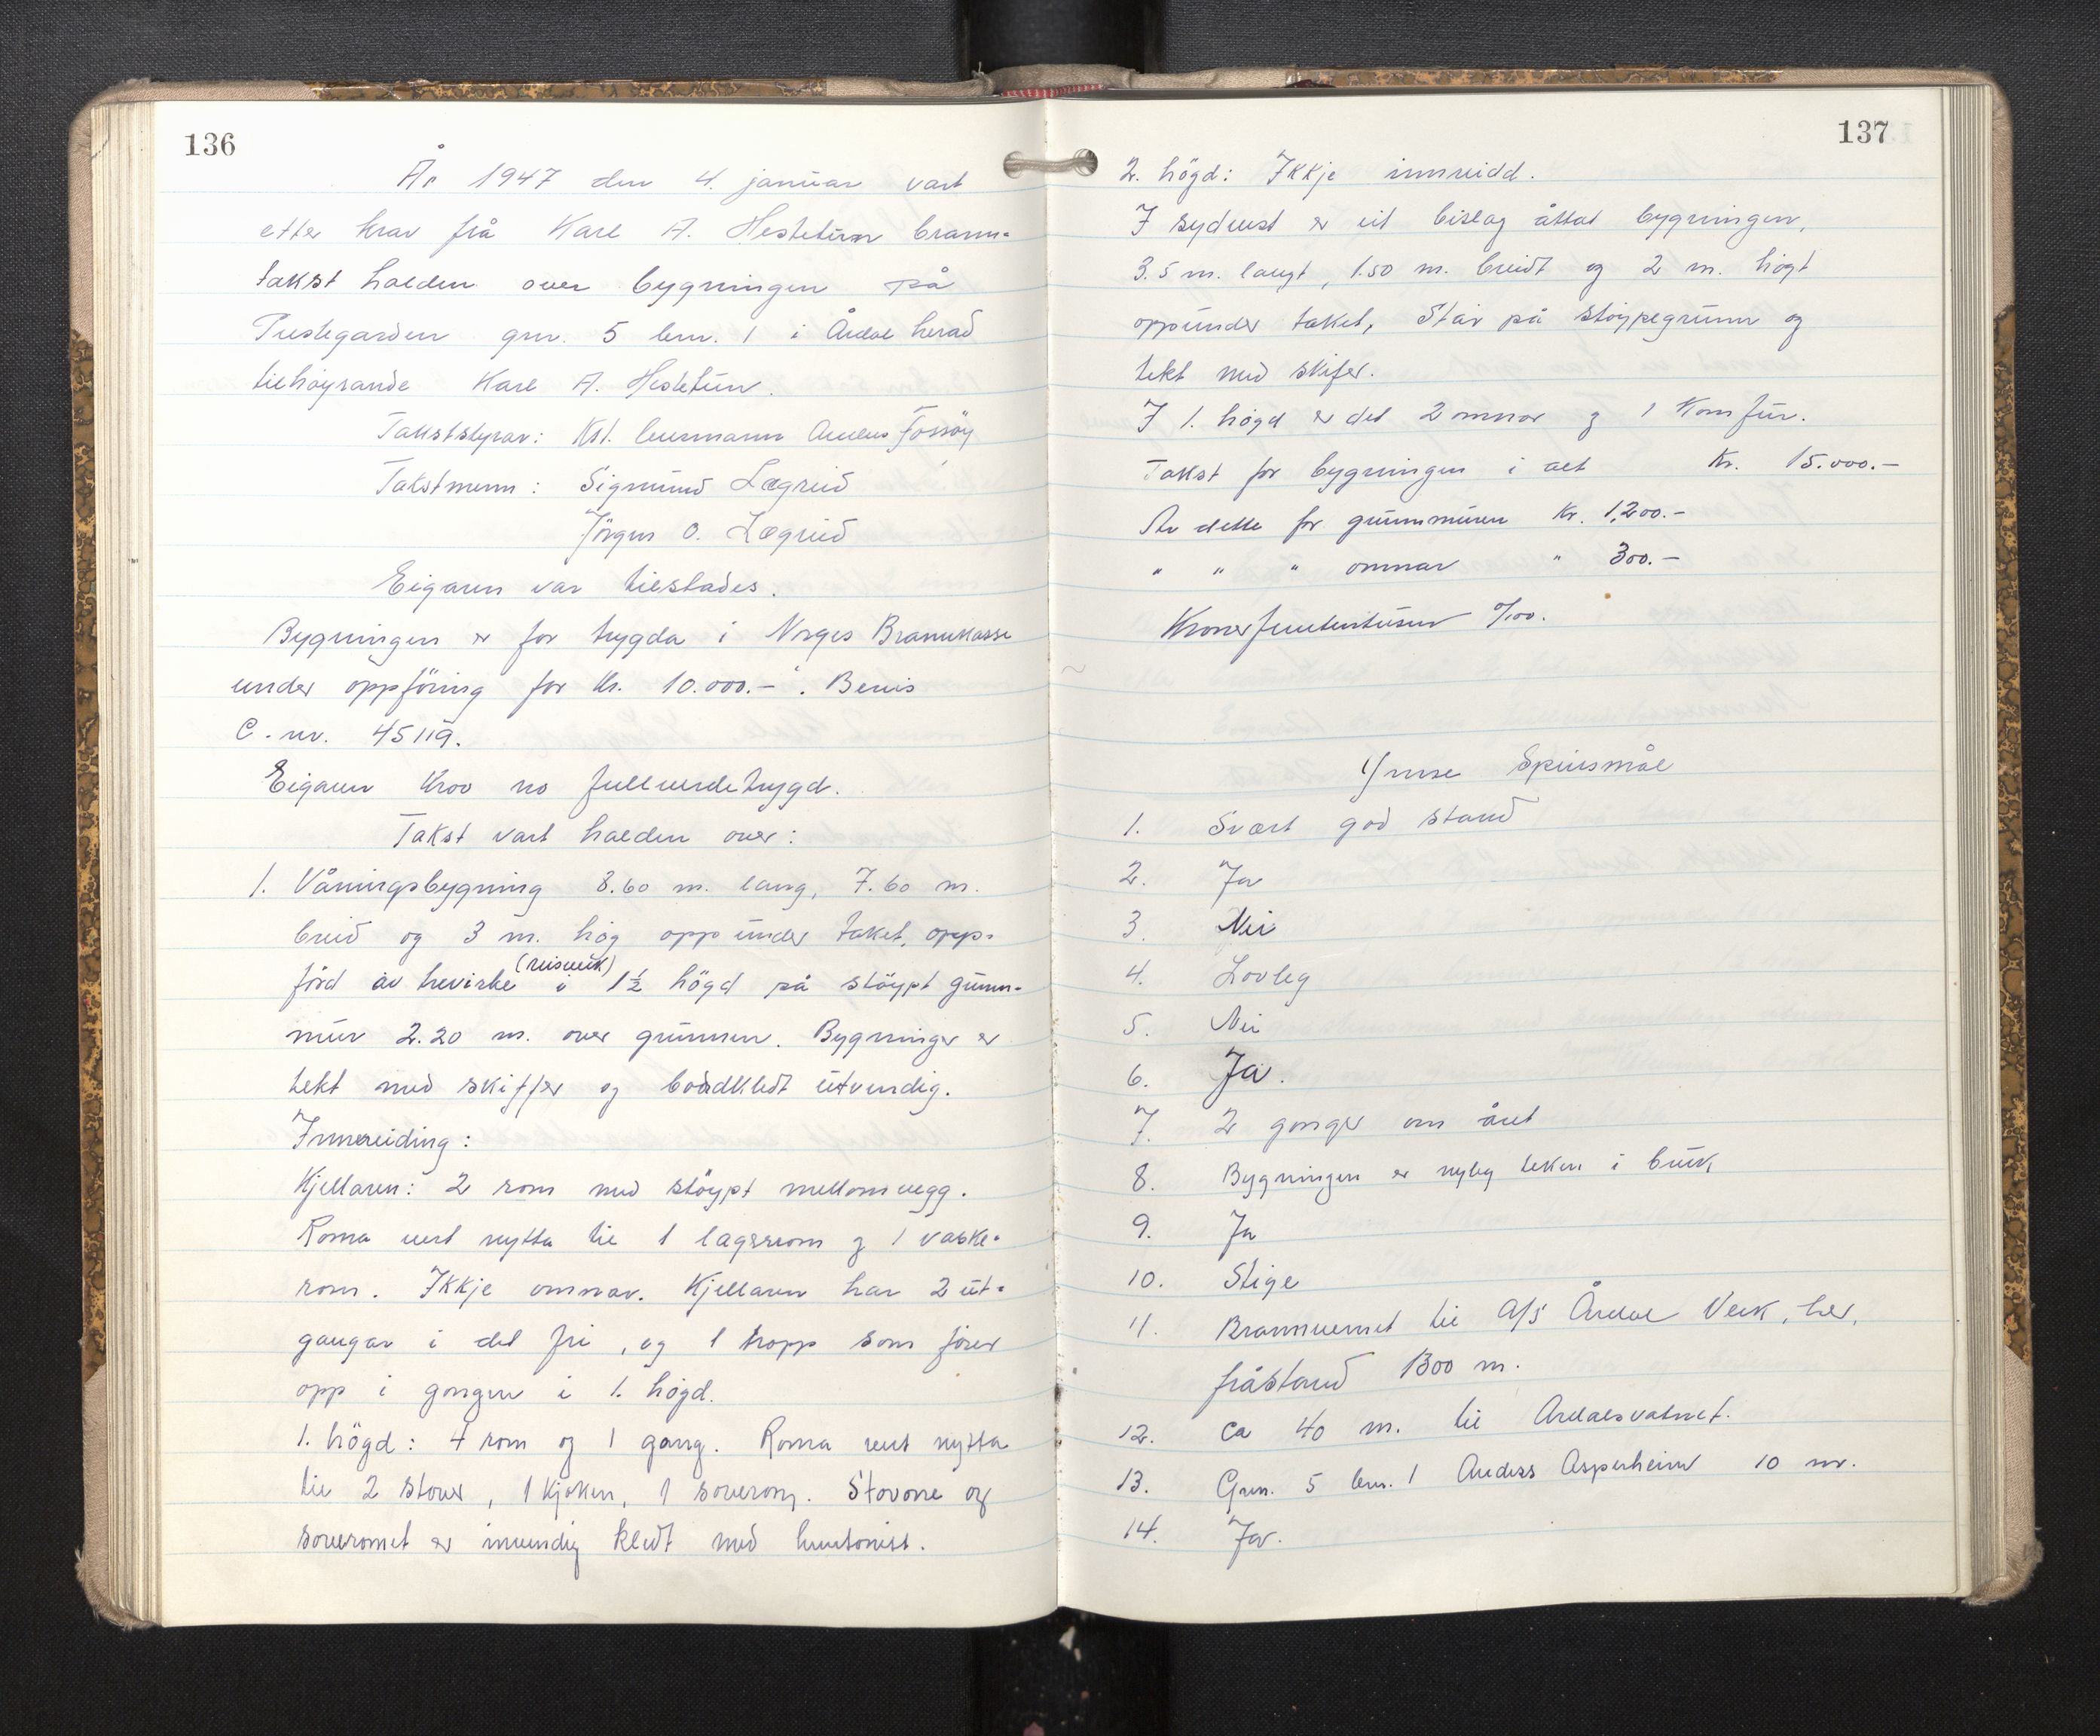 136
År 1947 den 4. januar vart
etter krav frå Karl A. Hestetun brann-
takst halden over bygningen på
Prestegarden gnr. 5 bnr. 1 i Årdal herad
tilhøyrande Karl A. Hestetun.
Takststyrar: Kst. lensmann Anders Fossøy
Takstmenn: Sigmund Lægreid
Jörgen O. Lægreid
Eigaren var tilstades.
Bygningen er for trygda i Norges Brannkasse
under oppföring for kr. 10.000.-. Bevis
C. nr. 45119.
Eigaren krov no fullverdetrygd.
Takst vart halden over:
1. Våningsbygning 8.60 m. lang, 7.60 m.
breid og 3 m. høg oppunder taket, opp-
förd av trevirke (reisverk) i 1½ högd på støypt grunn-
mur 2.20 m. over grunnen. Bygninger er
tekt med skiffer og bordkledt utvendig.
Innreiding:
Kjellaren: 2 rom med støypt mellomvegg.
Roma vert nytta til 1 lagsrom og 1 vaske-
rom. Ikkje omnar. Kjellaren har 2 ut-
gangar i det fri, og 1 tropp som förer
opp i gongen i 1. høgd.
1. högd: 4 rom og 1 gang. Roma vert nytta
til 2 stover, 1 kjøken, 1 soverom. Stovone og
soveromet er invendig kledt med huntonitt.
137
2. högd: Ikkje innreidd.
I sydvest er eit bislag åttat bygningen,
3.5 m. langt, 1.50 m. breidt og 2 m. høgt
oppunder taket, Står på støypegrunn og
tekt med skifer.
I 1. høgd er det 2 omnar og 1 komfur.
Takst for bygningen i alt Kr. 15.000.-
Av dette for grunnmuren Kr. 1,200.-
" " " omnar " 300.-
Kronerfemtentusen 0/00.
Ymse Spursmål
1. Svært god stand
2. Ja
3. Nei
4. Lovleg
5. Nei
6. Ja.
7. 2 gonger om året
8. Bygningen er nyleg teken i bruk,
9. Ja
10. Stige
11. Brannvernet til A/S Årdal Verk, her,
fråstand 1300 m.
12. ca 40 m. til Årdalsvatnet.
13. Gnr. 5 bnr. 1 Anders Asperheim 10 m.
14. Ja.